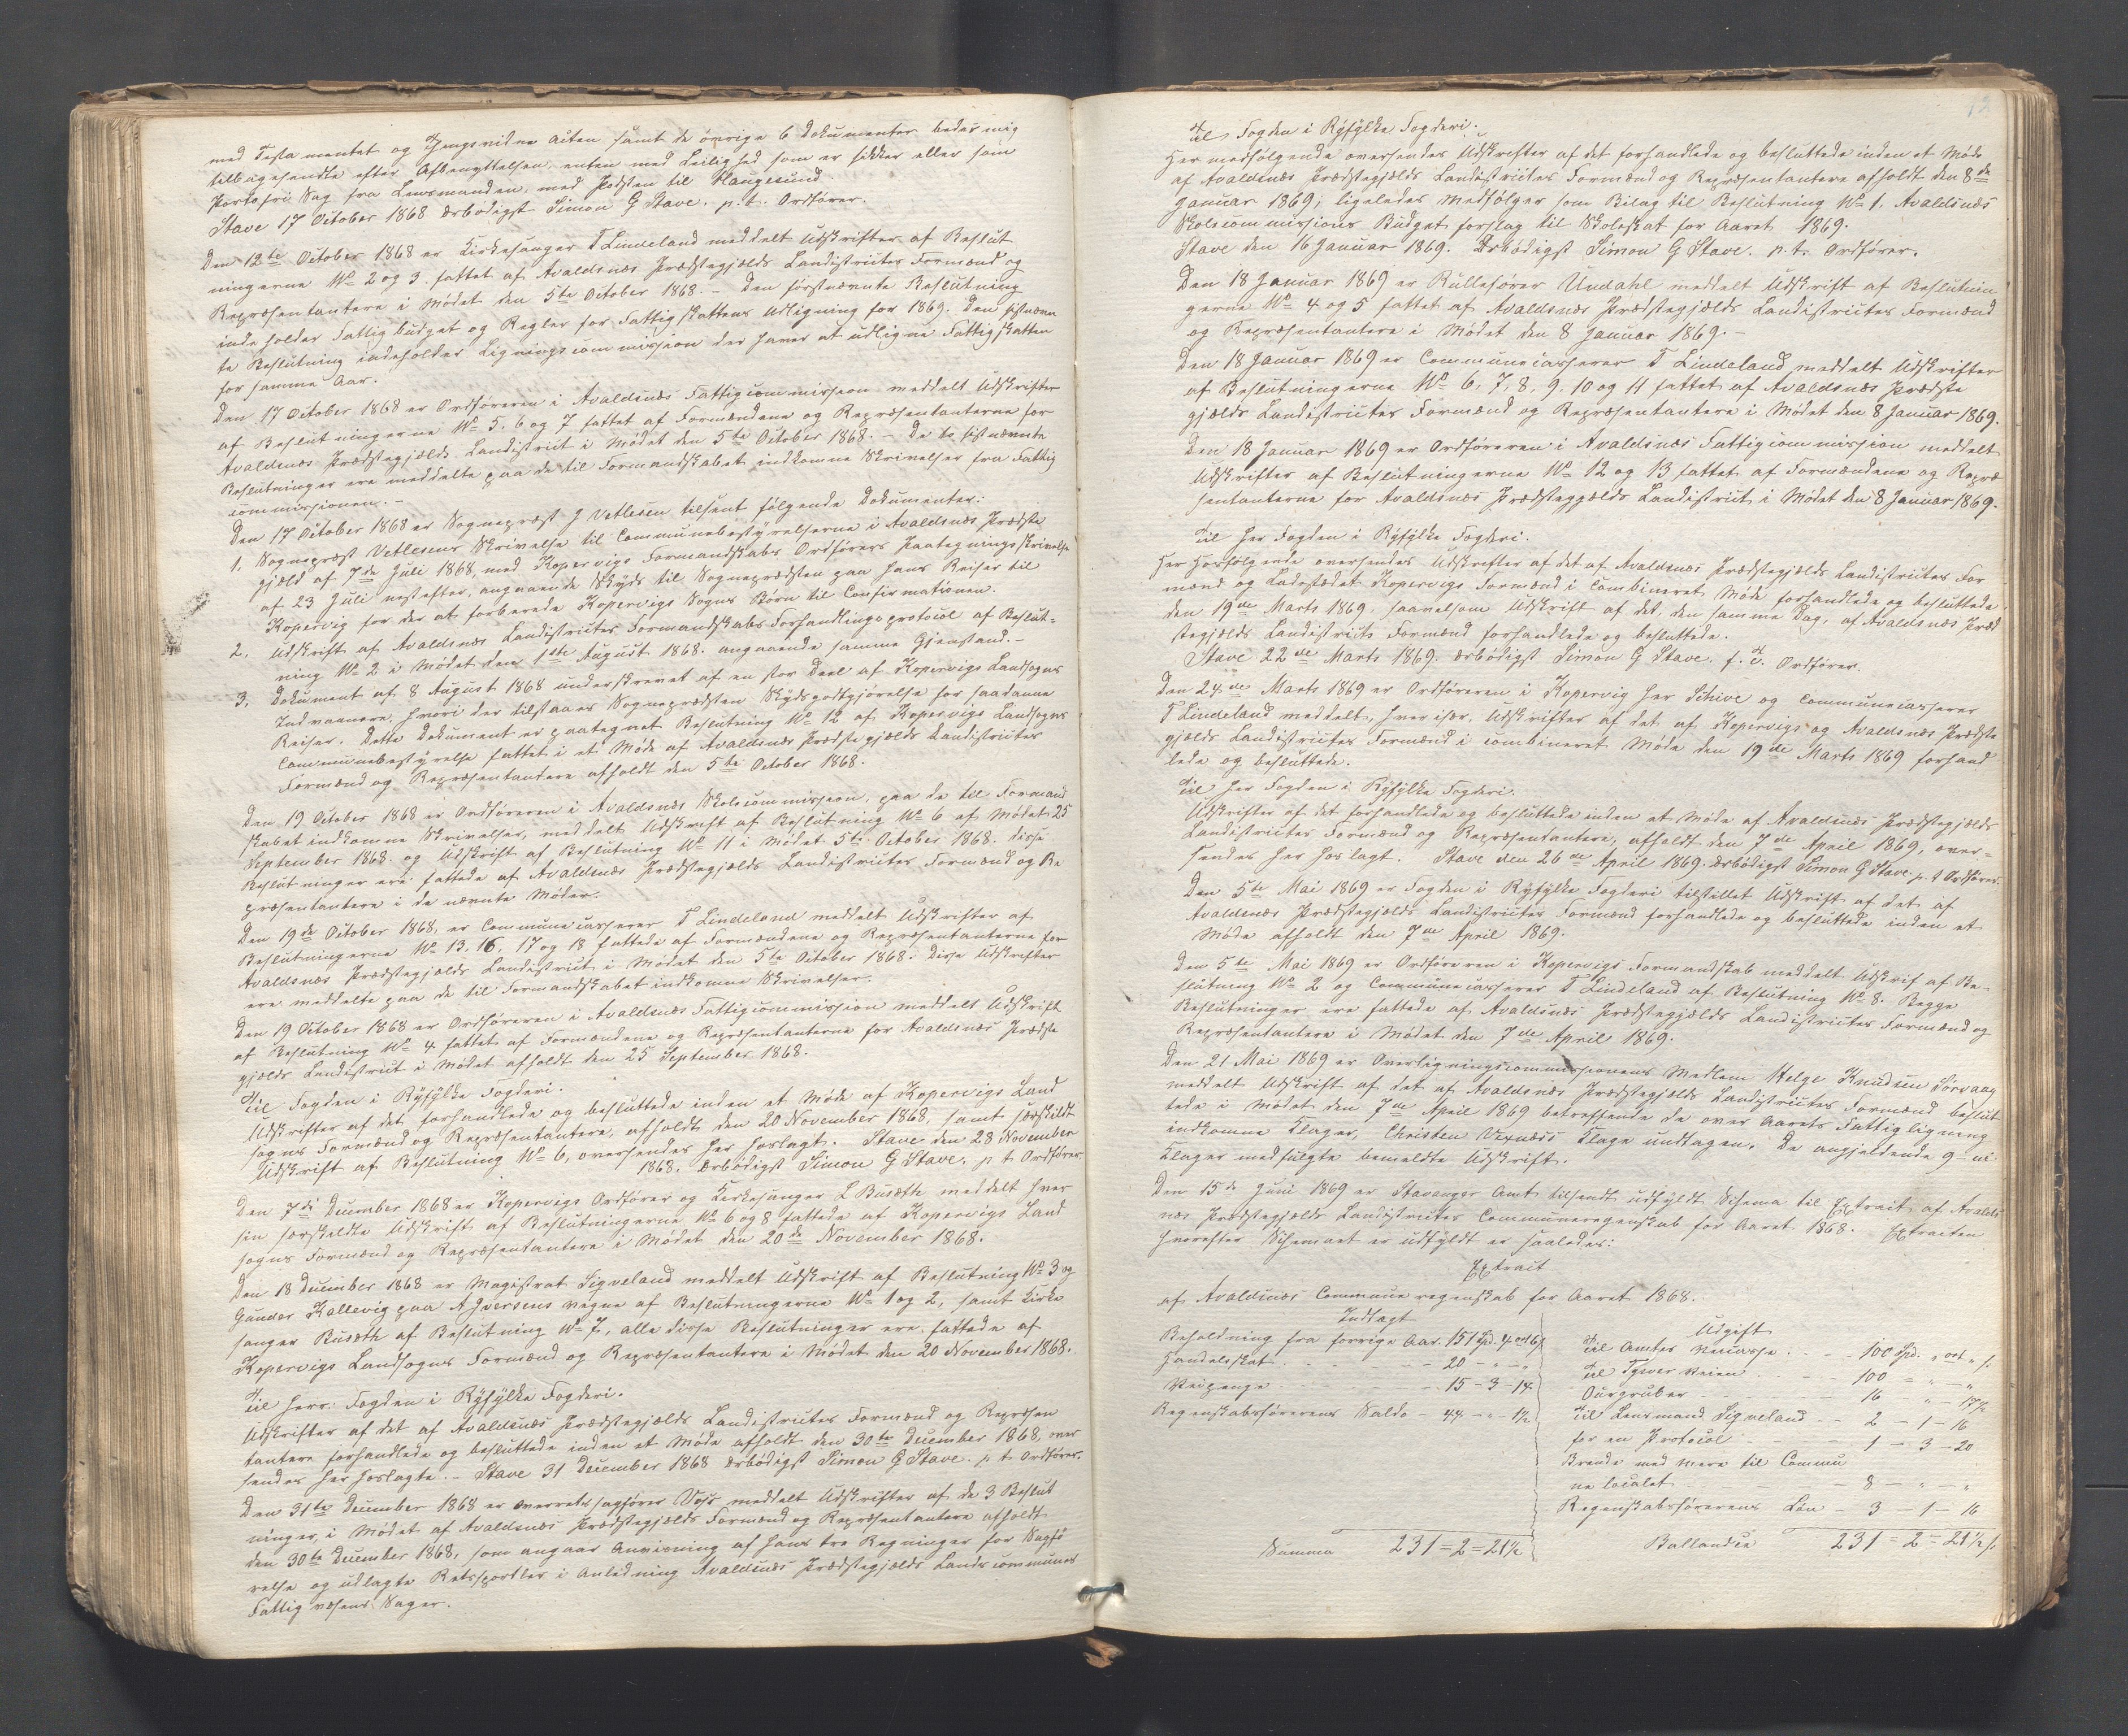 med Testamentet og Thingsvidne Akten samt de øvrige 6 Dokumenter bedes mig
tilbagesendte efter Afbenyttelsen, enten med Leilighed som er sikker eller som
Portofri Sag fra Lensmanden, med Posten til Haugesund.
Stave 17 October 1868 Ærbødigst Simon G Stave. p.t. Ordfører.
Den 12te October 1868 er Kirkesanger T Lindeland meddelt Udskrifter af Beslut
ningerne No 2 og 3. fattet af Avaldsnæs Præstegjælds Landistricts Formænd og
Repræsentantere i Mødet den 5te October 1868. – Den førstnævnte Beslutning
inde holder Fattigbudget og Regler for Fattigskattens Udligning for 1869. Den sistnævn
te Beslutning indeholder Ligningscommission der haver at udligne Fattigskatten
for samme Aar.
Den 17 October 1868 er Ordføreren i Avaldsnæs Fattigcommission meddelt Udskrifter
af Beslutningerne No 5, 6 og 7 fattet af Formændene og Repræsentanterne for
Avaldsnæs Præstegjælds Landistrict i Mødet den 5te October 1868. – De to sistnævnte
Beslutninger ere meddelte paa de til Formandskabet indkomne Skrivelser fra Fattig
commissionen. –
Den 17 October 1868 er Sognepræst J Vetlesen tilsent følgende Dokumenter:
1. Sognepræst Vetlesens Skrivelse til Communebestyrelserne i Avaldsnæs Præste
gjæld af 7de Juli 1868, med Kopervigs Formandskabs Ordførers Paategningsskrivelse
af 23 Juli nestefter, angaaende Skyds til Sognepræsten paa hans Reiser til
Kopervig for der at forberede Kopervigs Sogns Børn til Confirmationen.
2. Udskrift af Avaldsnæs Landistricts Formandskabs Forhandlingsprotocol af Beslut=
ning No 2 i Mødet den 1ste August 1868. angaaende samme Gjenstand. –
3. Dokument af 8 August 1868 underskrevet af en stor Deel af Kopervigs Landsogns
Indvaanere, hvori der tilstaaes Sognepræsten Skydsgodtgjørelse for saadanne
Reiser. Dette Dokument er paategnet Beslutning No 12 af Kopervigs Landsogns
Communebestyrelse fattet i et Møde af Avaldsnæs Præstegjælds Landistricts
Formænd og Repræsentantere afholdt den 5te October 1868.
Den 19 October 1868 er Ordføreren i Avaldsnæs Skolecommission, paa de til Formand
skabet indkomne Skrivelser, meddelt Udskrift af Beslutning No 6 af Mødet 25
September 1868. og Udskrift af Beslutning No 11 i Mødet 5te October 1868. disse
Beslutninger ere fattede af Avaldsnæs Præstegjælds Landistricts Formænd og Re
præsentantere i de nævnte Møder.
Den 19de October 1868, er Communecasserer T Lindeland meddelt Udskrifter af
Beslutningerne No 13, 16, 17 og 18 fattede af Formændene og Repræsentanterne for
Avaldsnæs Præstegjælds Landistrict i Mødet den 5te October 1868. Disse Udskrifter
ere meddelte paa de til Formandskabet indkomne Skrivelser.
Den 19 October 1868 er Ordføreren i Avaldsnæs Fattigcommission meddelt Udskrift
af Beslutning No 4 fattet af Formændene og Repræsentanterne for Avaldsnæs Præste
gjælds Landistrict i Mødet afholdt den 25 September 1868.
Til Fogden i Ryfylke Fogderi.
Udskrifter af det forhandlede og besluttede inden et Møde af Kopervigs Land
sogns Formænd og Repræsentantere, afholdt den 20 November 1868, samt særskildt
Udskrift af Beslutning No 6, oversendes her hoslagt. Stave den 28 November
1868. Ærbødigst Simon G Stave, p t Ordfører.
Den 7de December 1868 er Kopervigs Ordfører og Kirkesanger L Busæth meddelt hver
sin særskildte Udskrift af Beslutningerne No 6 og 8 fattede af Kopervigs Land
sogns Formænd og Repræsentantere i Mødet den 20de November 1868.
Den 18 December 1868 er Magistrat Sigveland meddelt Udskrift af Beslutning No 3 og
Gunder Kallevig paa A Iversens vegne af Beslutningerne No 1 og 2, samt Kirke
sanger Busæth af Beslutning No 7, alle disse Beslutninger ere fattede af
Kopervigs Landsogns Formænd og Repræsentantere i Mødet den 20 November 1868.
Til Herr: Fogden i Ryfylke Fogderi.
Udskrifter af det af Avaldsnæs Præstegjælds Landistricts Formænd og Repræsen
tantere forhandlede og besluttede inden et Møde afholdt den 30te December 1868, over
sendes her hoslagte. – Stave 31 December 1868 Ærbødigst Simon G Stave. p t Ordfører.
Den 31te December 1868 er Overretssagfører Voss meddelt Udskrifter af de 3 Beslut
ninger, i Mødet af Avaldsnæs Præstegjælds Formænd og Repræsentantere afholdt
den 30te December 1868, som angaar Anvisning af hans tre Regninger for Sagfø
relse og udlagte Retssportler i Anledning Avaldsnæs Præstegjælds Landscommunes
Fattigvæsens Sager.
Til Fogden i Ryfylke Fogderi.
Her medfølgende oversendes Udskrifter af det forhandlede og besluttede inden et Møde
af Avaldsnæs Præstegjælds Landistricts Formænd og Repræsentantere afholdt den 8de
Januar 1869, ligeledes medfølger som Bilag til Beslutning No 1. Avaldsnæs
Skolecommissions Budgetforslag til Skoleskat for Aaret 1869.
Stave den 16 Januar 1869. Ærbødigst Simon G Stave. p.t. Ordfører.
Den 18 Januar 1869 er Rullefører Undahl meddelt Udskrift af Beslutnin
gerne No 4 og 5 fattet af Avaldsnæs Præstegjælds Landistricts Formænd
og Repræsentantere i Mødet den 8 Januar 1869. –
Den 18 Januar 1869 er Communecasserer T Lindeland meddelt Udskrifter
af Beslutningerne No 6, 7, 8, 9, 10 og 11 fattet af Avaldsnæs Præste
gjælds Landistricts Formænd og Repræsentantere i Mødet den 8 Januar 1869.
Den 18 Januar 1869 er Ordføreren i Avaldsnæs Fattigcommission meddelt
Udskrifter af Beslutningerne No 12 og 13 fattet af Formændene og Repræ
sentanterne for Avaldsnæs Præstegjælds Landistrict, i Mødet den 8 Januar 1869.
Til Her Fogden i Ryfylke Fogderi.
Her Hosfølgende oversendes Udskrifter af det af Avaldsnæs Præstegjælds Landistricts For
mænd og Ladestedet Kopervigs Formænd i Combineret Møde forhandlede og besluttede
den 19de Marts 1869. saavelsom Udskrift af det, den samme Dag, af Avaldsnæs Præ
stegjælds Landistricts Formænd forhandlede og besluttede.
Stave 22de Marts 1869. Ærbødigst Simon G Stave. f. T. Ordfører.
Den 24de Marts 1869 er Ordføreren i Kopervig Her Schive og Communecasserer
T Lindeland meddelt, hver især, Udskrifter af det af Kopervigs og Avaldsnæs Præste
gjælds Landistricts Formænd i combineret Møde den 19de Marts 1869 forhand
lede og besluttede.
Til Her Fogden i Ryfylke Fogderi.
Udskrifter af det forhandlede og besluttede inden et Møde af Avaldsnæs Præstegjælds
Landistricts Formænd og Repræsentantere, afholdt den 7de April 1869, over=
sendes her hoslagt. Stave den 26de April 1869. Ærbødigst Simon G Stave p. t Ordfører.
Den 5te Mai 1869 er Fogden i Ryfylke Fogderi tilstillet Udskrift af det af
Avaldsnæs Præstegjælds Landistricts Formænd forhandlede og besluttede inden et
Møde afholdt den 7de April 1869.
Den 5te Mai 1869 er Ordføreren i Kopervigs Formandskab meddelt Udskrif af Be=
slutning No 2 og Communecasserer T Lindeland af Beslutning No 8. Begge
Beslutninger ere fattede af Avaldsnæs Præstegjælds Landistricts Formænd og
Repræsentantere i Mødet den 7de April 1869.
Den 21 Mai 1869 er Overligningscommissionens Medlem Helge Knudsen Sørvaag
meddelt Udskrift af det af Avaldsnæs Præstegjælds Landistricts Formænd beslut
tede i Mødet den 7de April 1869 betreffende de over Aarets Fattigligning
indkomne Klager, Christen Vixnæss Klage undtagen. De angjeldende 9 – ni
Klager medfulgte bemeldte Udskrift.
Den 15de Juni 1869 er Stavanger Amt tilsendt udfyldt Schema til Extrait af Avalds
næs Præstegjælds Landistricts Communeregenskab for Aaret 1868. Extraiten
hvorefter Schemaet er udfyldt er saaledes:
Extrait
af Avaldsnæs Communeregenskab for Aaret 1868.
Indtægt
Beholdning fra forrige Aar. 151 Spd. 4 ort 16 s
Handelsskat - - - - 20 - „ - „
Veipenge - - - - 15 - 3 - 14.
Regenskabsførerens Saldo - 44 - „ - 1½
Summa 231 = 2 = 21½
Udgift
Til Amtets Veicasse - - 100 Spd. „ ort „ s.
Til Tysver Veien - - 100 = „ - „
Ourgruber - - - 16 „ - 17½
Til Lensmand Sigveland - - 2 - 1 - 16
for en Protocol - - 1 - 3 - 20
Brende med mere til Commu
ne localet - - 8 - „ - „
Regenskabsførerens Løn - 3 - 1 - 16
Ballance 231 = 2 = 21½ s.